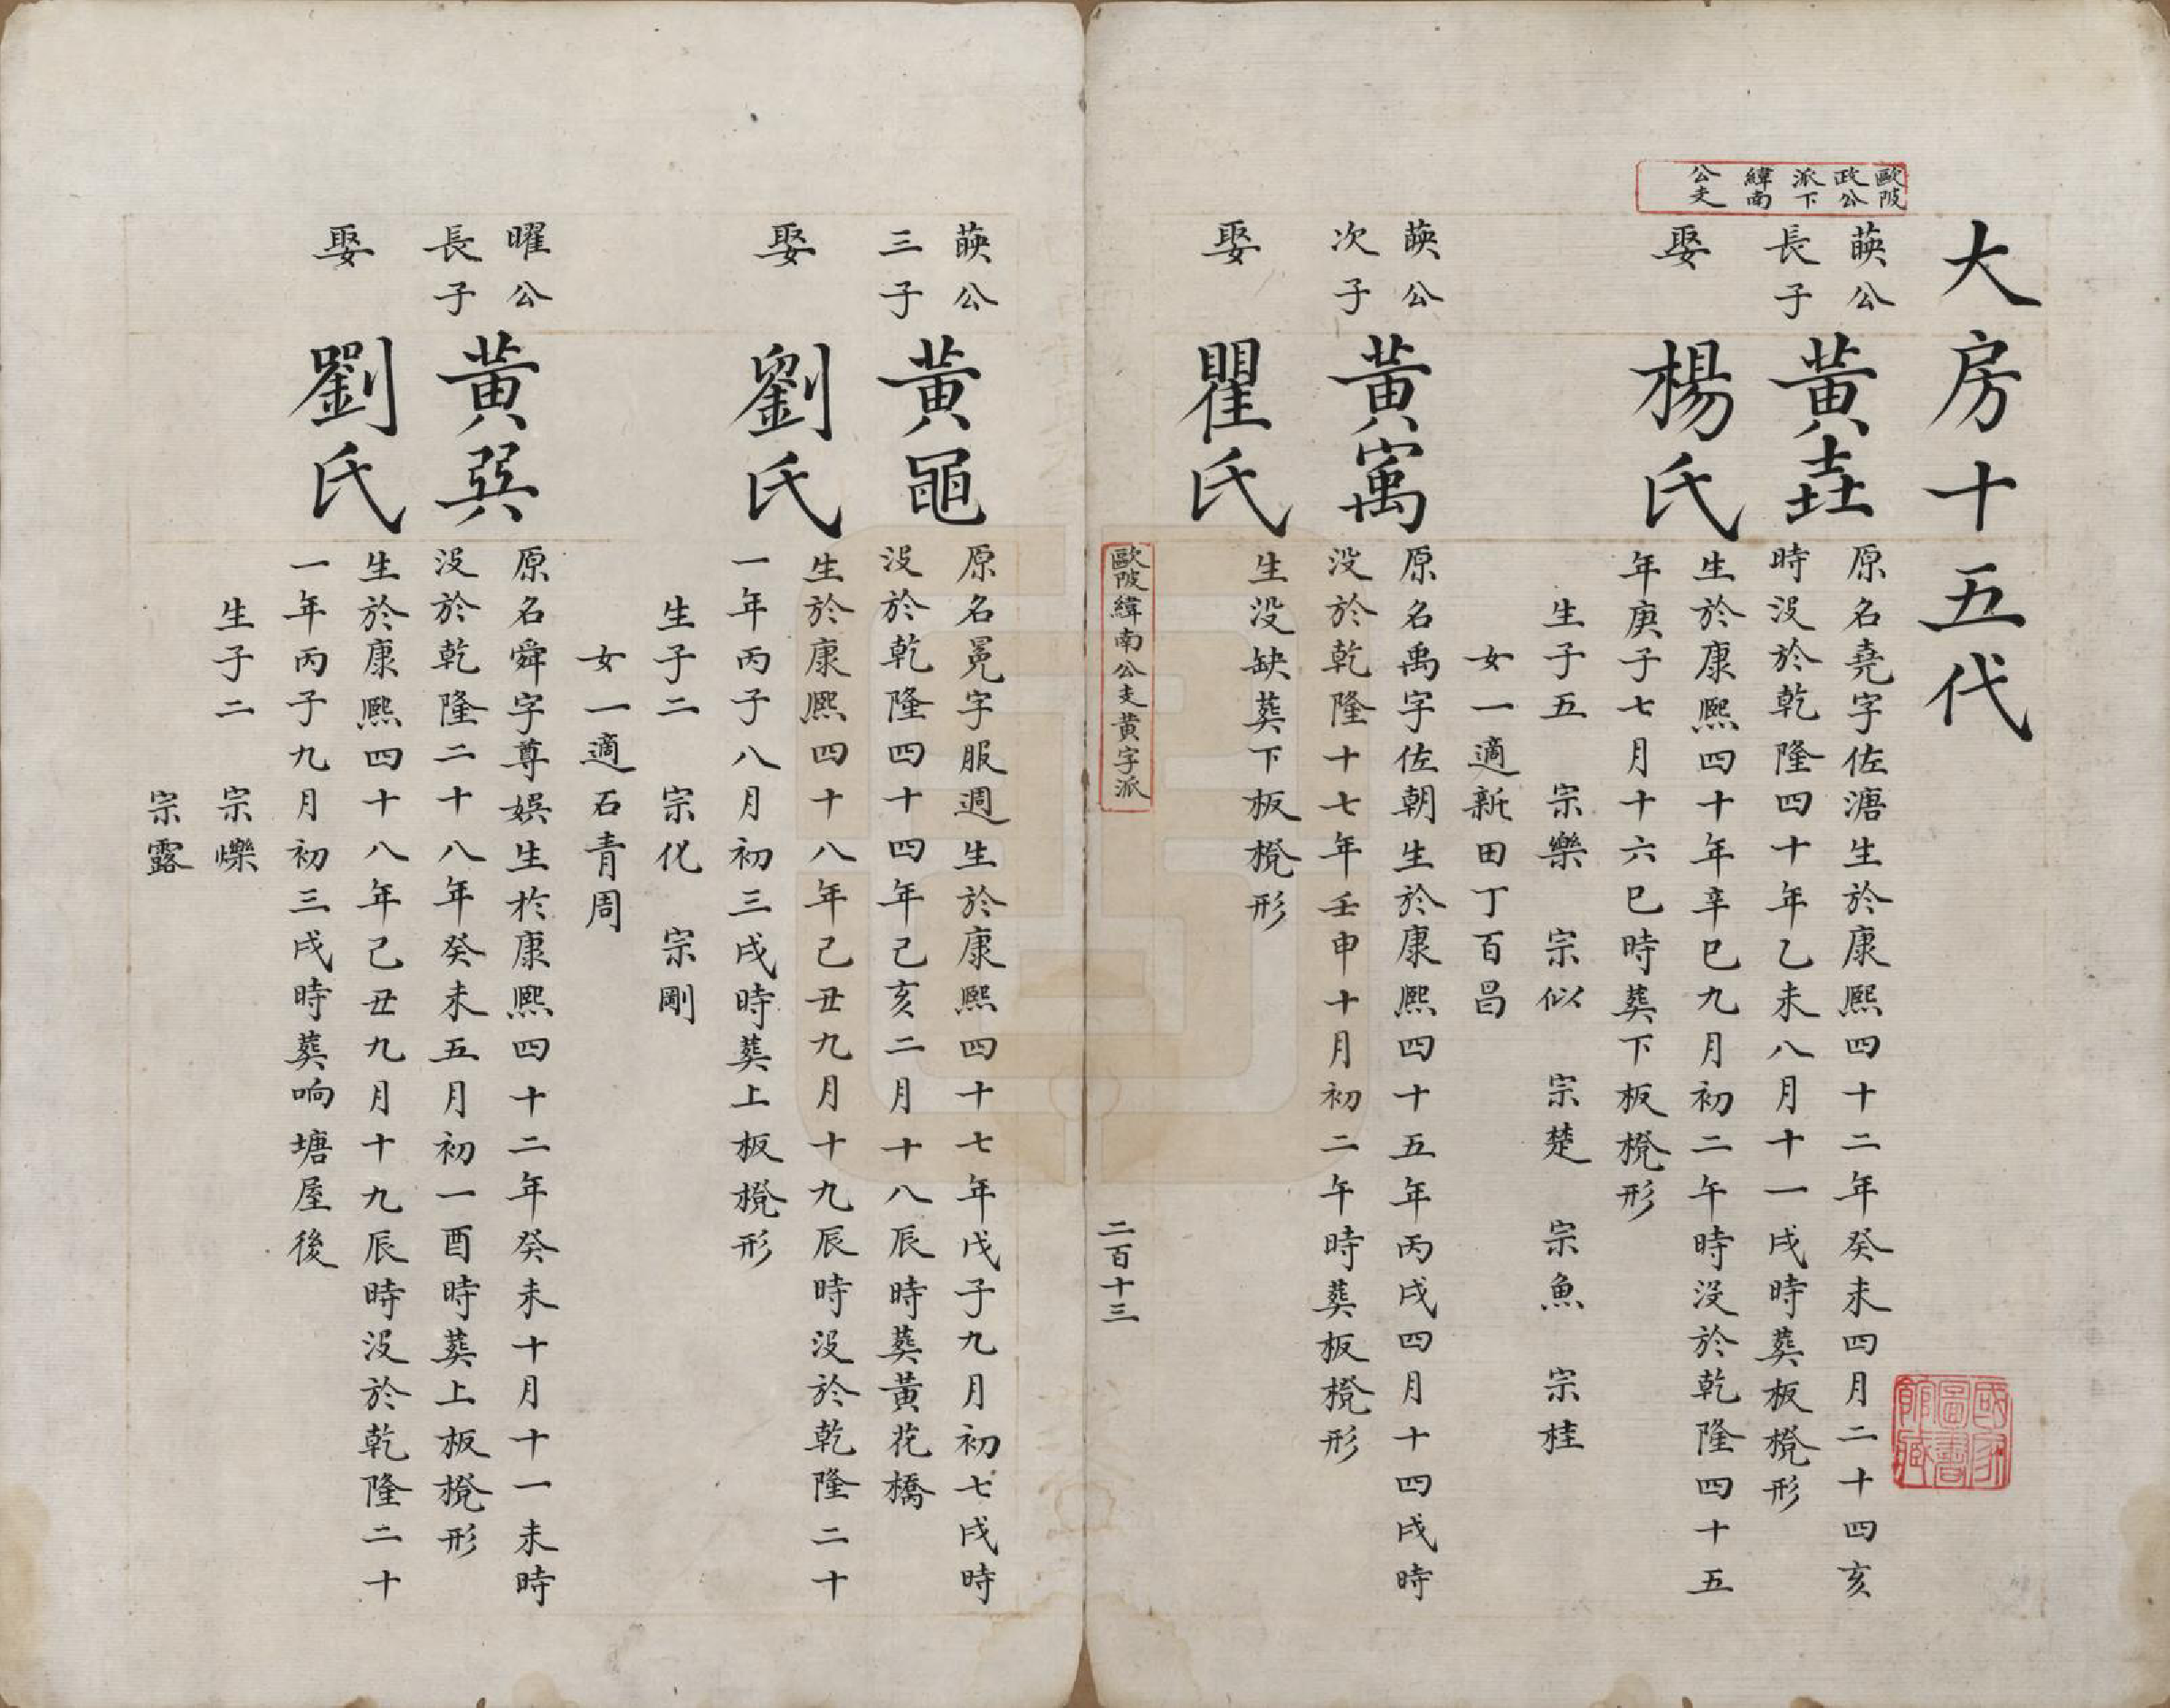 大房十五代
歐陂
政公
派下
緯南
公支
萸公
長子
黃壵
原名堯字佐溏生於康熙四十二年癸未四月二十四亥
時沒於乾隆四十年乙未八月十一戌時葬板櫈形
娶
楊氏
生於康熙四十年辛巳九月初二午時沒於乾隆四十五
年庚子七月十六巳時葬下板櫈形
生子五 宗樂 宗似 宗楚 宗魚 宗桂
女一適新田丁百昌
萸公
次子
黃寓
原名禹字佐朝生於康熙四十五年丙戌四月十四戌時
沒於乾隆十七年壬申十月初二午時葬板櫈形
娶
瞿氏
生沒缺葬下板櫈形
歐陂緯南公支黃字派
二百十三
萸公
三子
黃黽
原名冕字服週生於康熙四十七年戊子九月初七戌時
沒於乾隆四十四年己亥二月十八辰時葬黃花橋
娶
劉氏
生於康熙四十八年己丑九月十九辰時沒於乾隆二十
一年丙子八月初三戌時葬上板櫈形
生子二 宗化 宗剛
女一適石青周
曜公
長子
黃巽
原名舜字尊娛生於康熙四十二年癸未十月十一未時
沒於乾隆二十八年癸未五月初一酉時葬上板櫈形
娶
劉氏
生於康熙四十八年己丑九月十九辰時沒於乾隆二十
一年丙子九月初三戌時葬响塘屋後
生子二 宗爍
宗露
國家
圖書
館藏